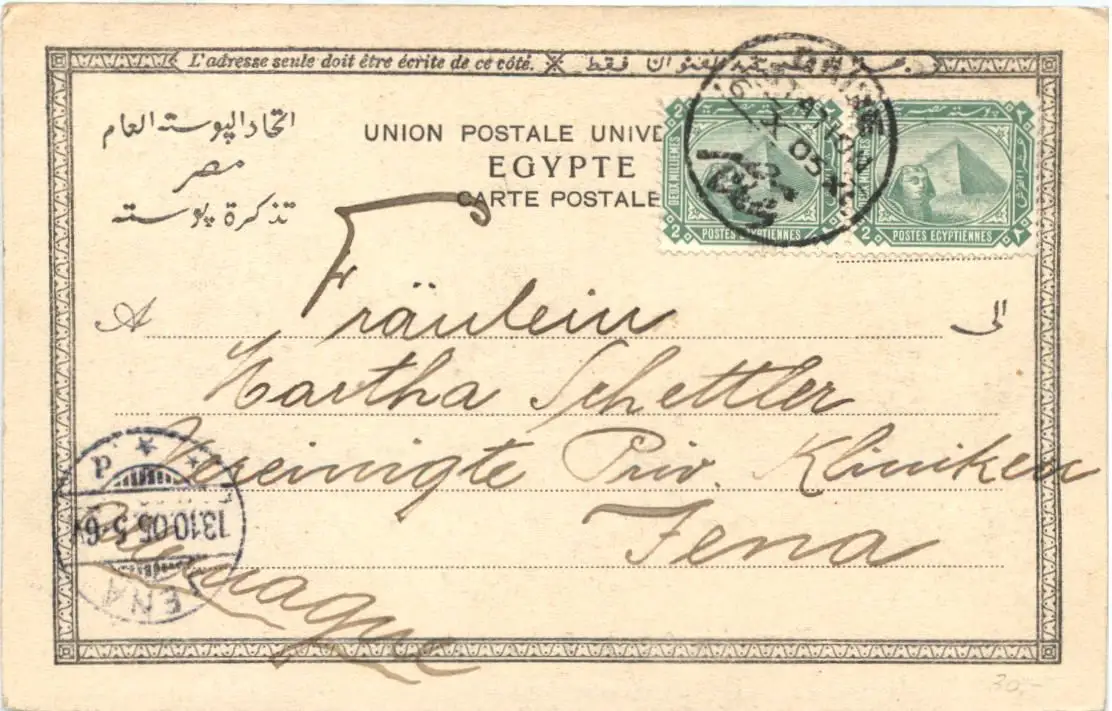 L'adresse seule doit être écrite de ce côté.
فقط
اتحاد البوسته العام
مصر
تذكرة بوسته
UNION POSTALE UNIVE
EGYPTE
CARTE POSTALE
DEUX MILLIEMES
2 POSTES EGYPTIENNES
2 POSTES EGYPTIENNES
A
الى
Fräulein
Martha Schettler
Vereinigte Priv. Kliniken
Jena
Allemagne
13.10.05. 5-6
JENA
30.-